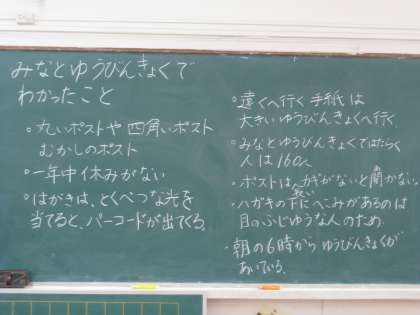 みなとゆうびんきょくで
わかったこと
○丸いポストや四角いポスト
むかしのポスト
○一年中休みがない
○はがきは、とくべつな光を
当てると、バーコードが出てくる。
○遠くへ行く手紙は
大きいゆうびんきょくへ行く。
○みなとゆうびんきょくではたらく
人は160人
○ポストはカギがないと開かない。
○ハガキの下にへこみがあるのは
目のふじゆうな人のため
○朝の6時からゆうびんきょくが
あいている。